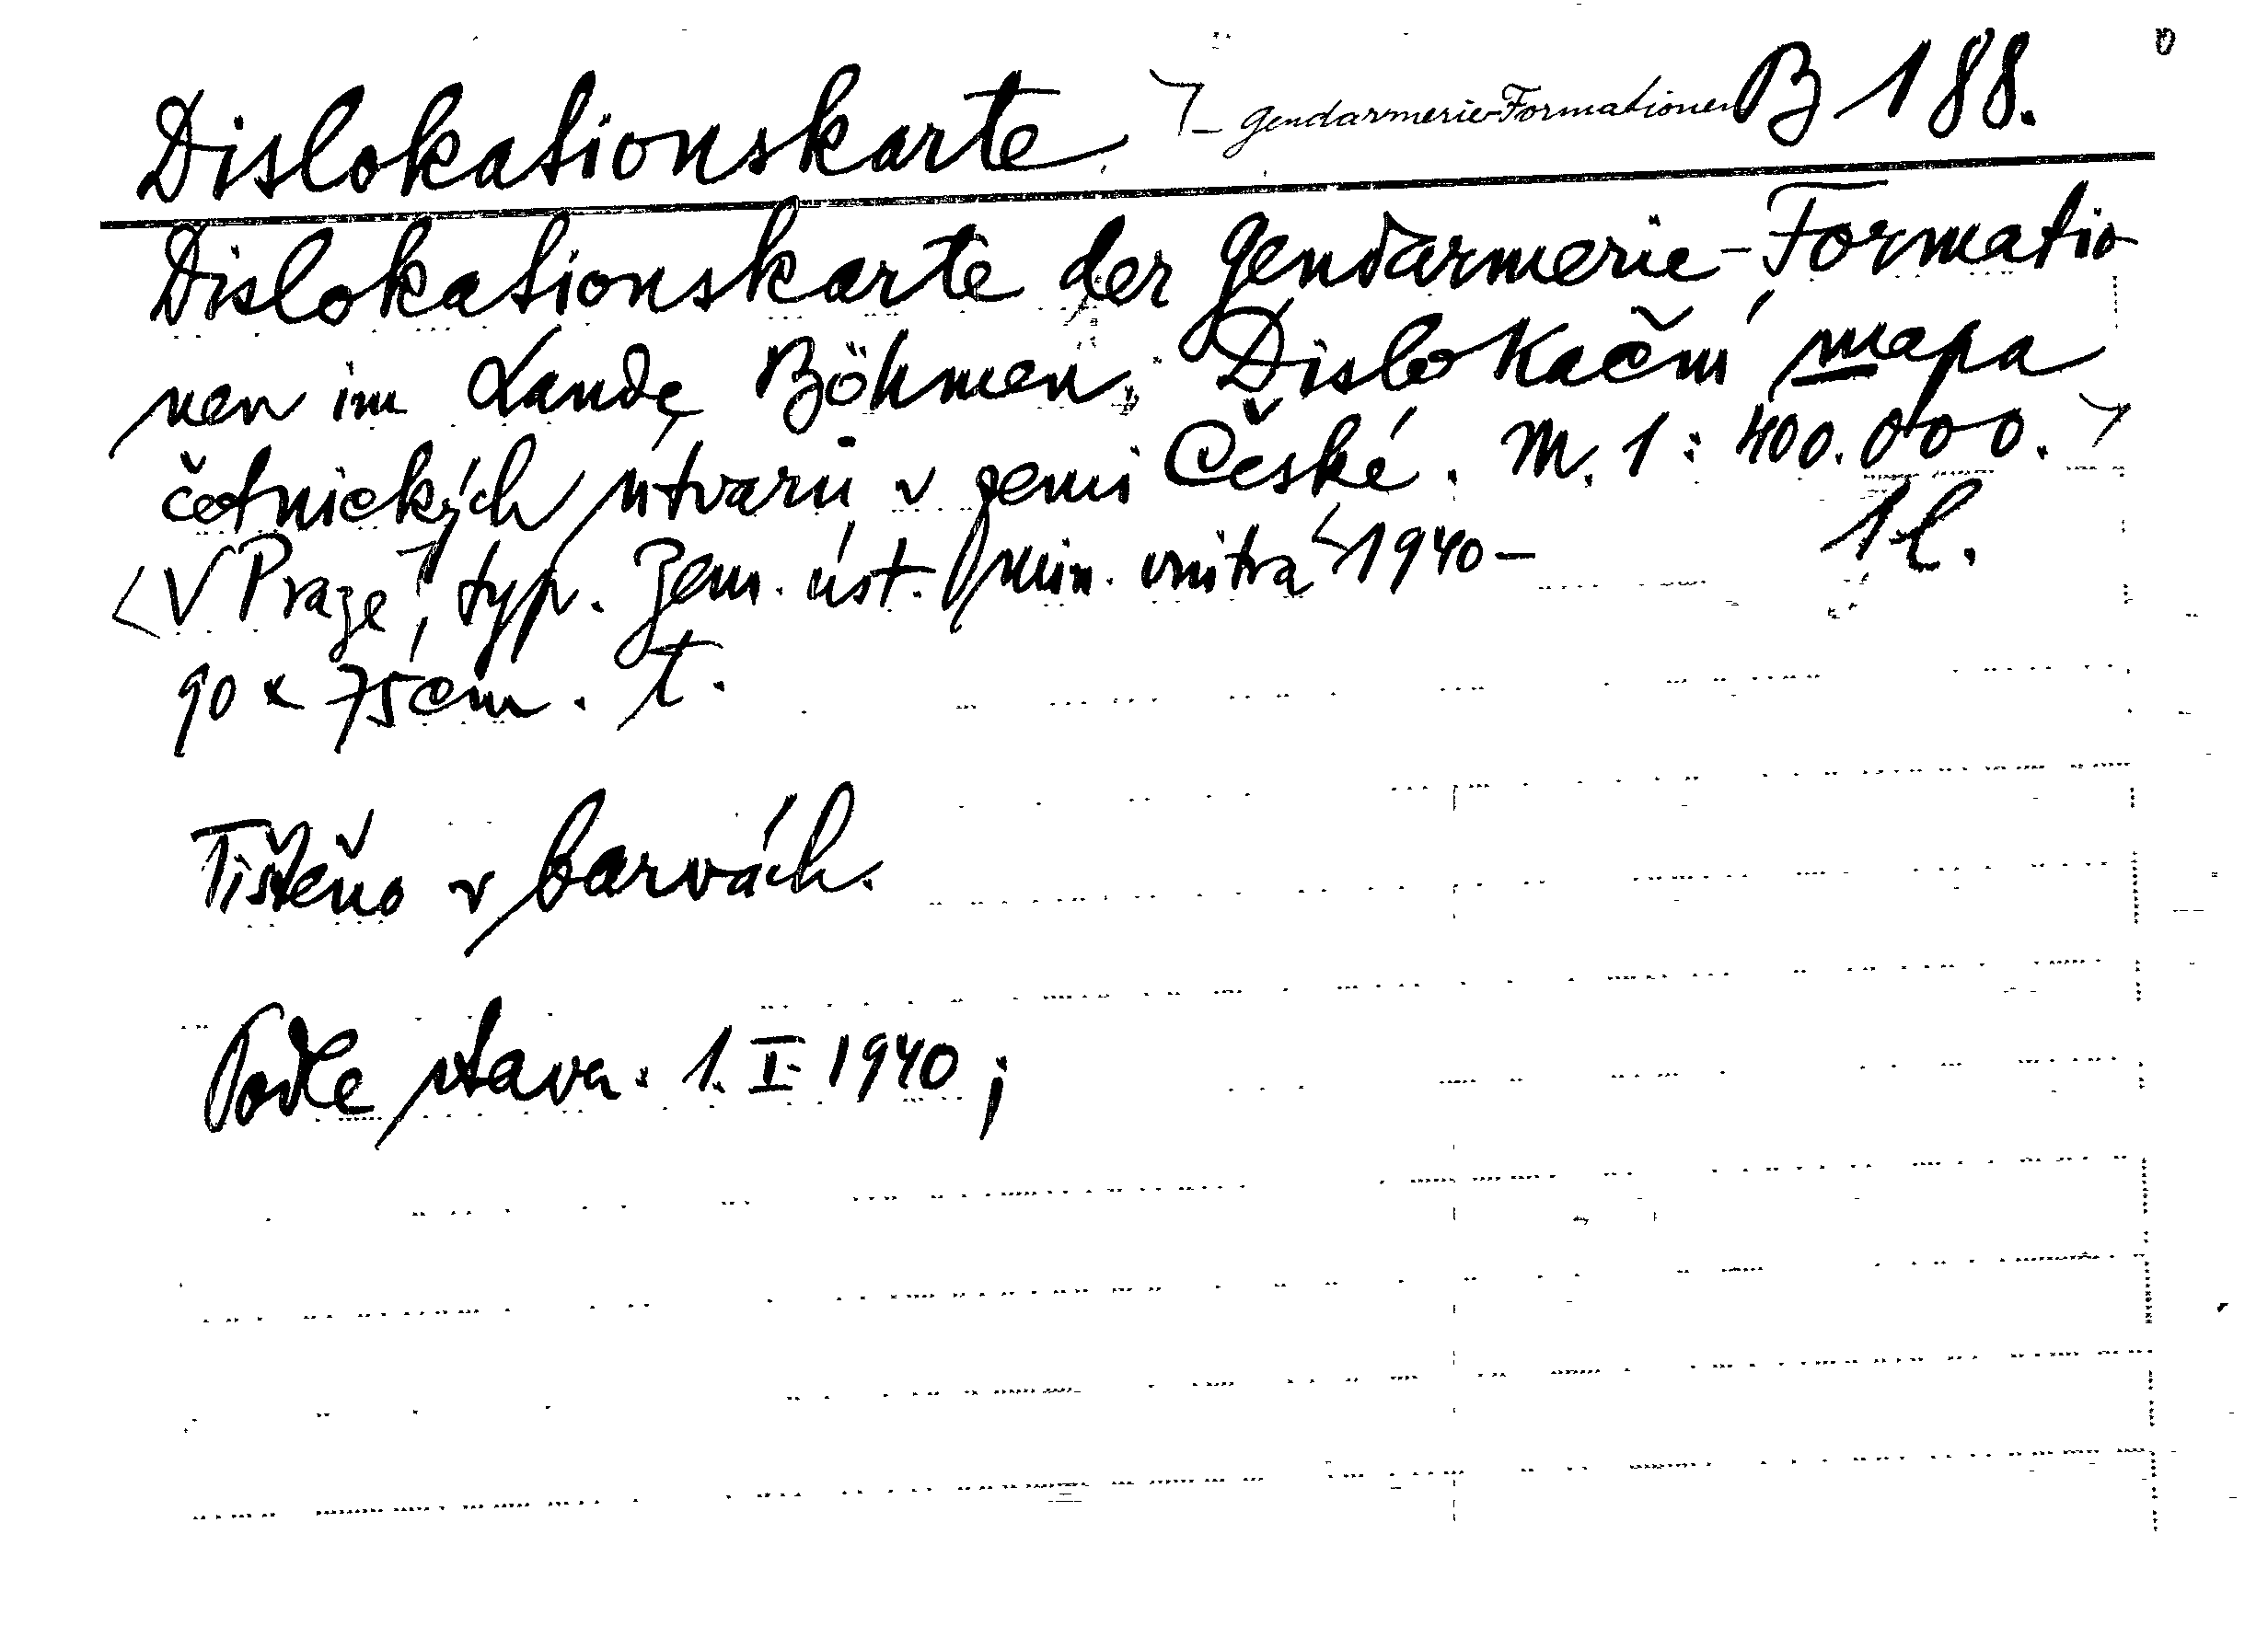 Dislokationskarte - Gendarmerie-Formationen B 188.
Dislokationskarte der Gendarmerie-Formatio
nen im Lande Böhmen. Dislokační mapa
četnických útvarů v zemi České. M. 1:400.000.
<V Praze, typ. Zem. úst. min. vnitra <1940- 1 l.
90 x 75 cm. t.
Tištěno v barvách.
Podle stavu. 1. I. 1940;